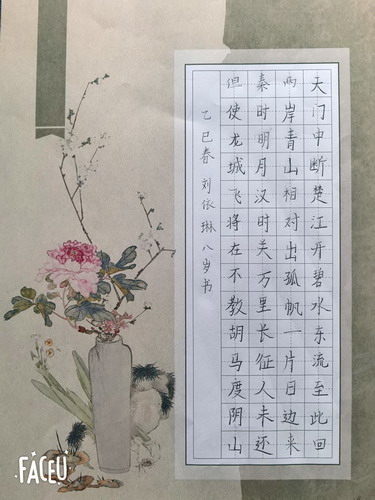 天门中断楚江开碧水东流至此回
两岸青山相对出孤帆一片日边来
秦时明月汉时关万里长征人未还
但使龙城飞将在不教胡马度阴山
乙巳春 刘依琳八岁书
FACEU